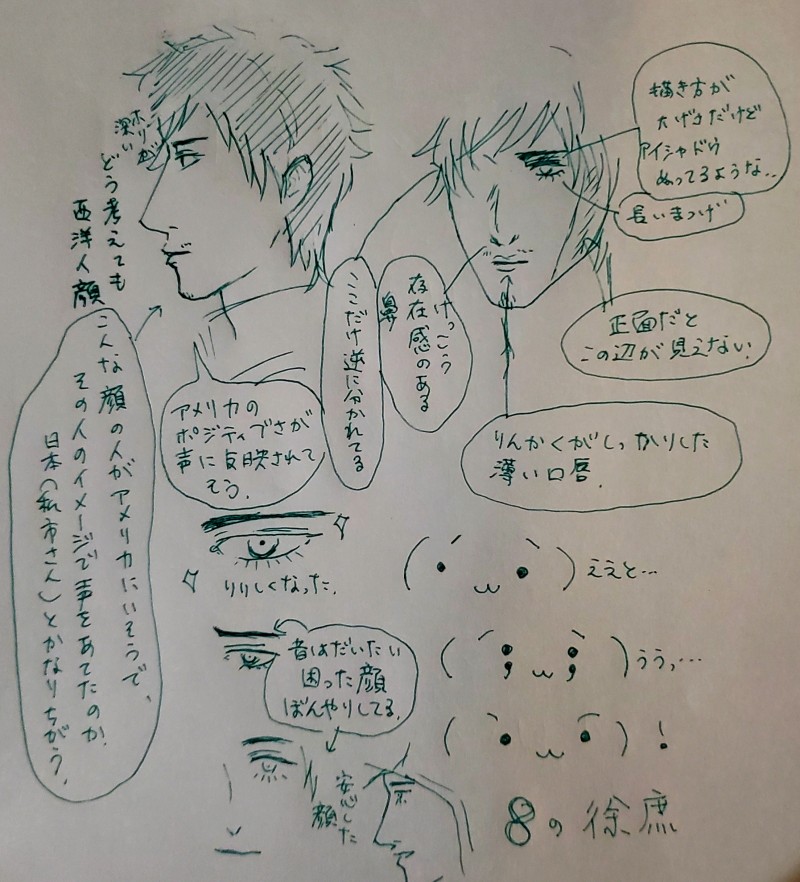 ホリが
深い
どう考えても
西洋人顔
描き方が
大げさだけど
アイシャドウ
ぬってるような..
長いまつげ
正面だと
この辺が見えない.
けっこう
存在感のある
鼻
ここだけ逆に分かれてる
りんかくがしっかりした
薄い口唇.
アメリカの
ポジティブさが
声に反映されて
そう.
こんな顔の人がアメリカにいそうで、
その人のイメージで声をあてたのか.
日本(私市さん)とかなりちがう.
りりしくなった.
昔はだいたい
困った顔
ぼんやりしてる.
安心した
顔
(´・ω・`)ええと…
(´;ω;`)ううっ…
(`・ω・´)!
8の徐庶